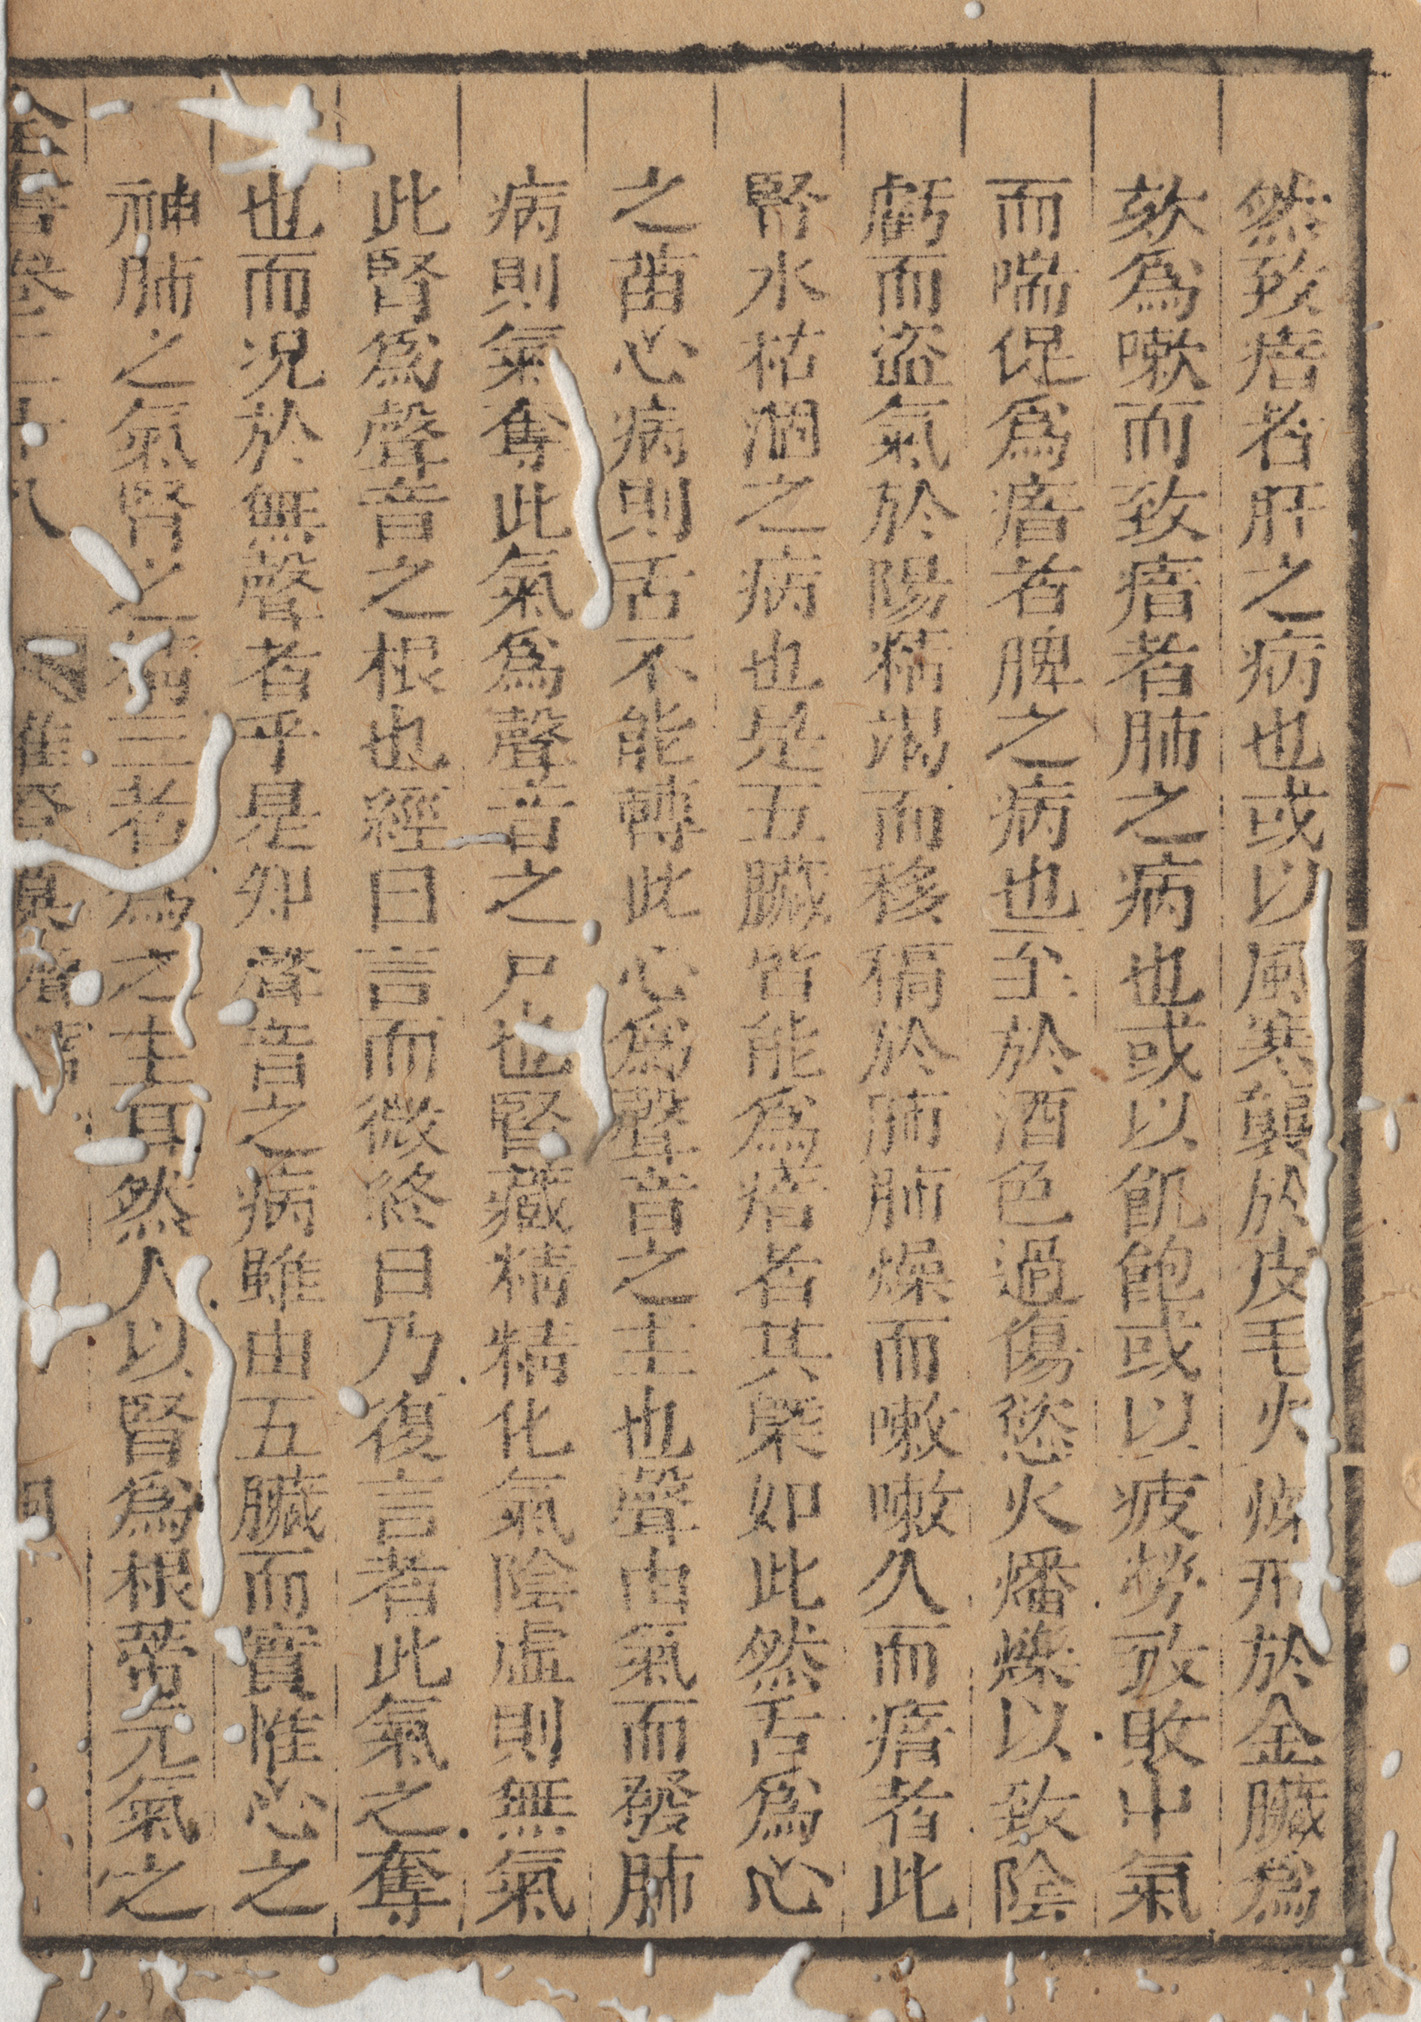 然致瘖者肝之病也或以風寒襲於皮毛火燥刑於金臟爲
欬爲嗽而致瘖者肺之病也或以飢飽或以疲勞致敗中氣
而喘促爲瘖者脾之病也至於酒色過傷慾火燔爍以致陰
虧而盜氣於陽精渴而移槁於肺肺燥而嗽嗽久而瘖者此
腎水枯涸之病也是五臟皆能爲瘖者其槩如此然舌爲心
之苗心病則舌不能轉此心爲聲音之主也聲由氣而發肺
病則氣奪此氣爲聲音之户也腎藏精精化氣陰虛則無氣
此腎爲聲音之根也經曰言而微終日乃復言者此氣之奪
也而况於無聲者乎是知聲音之病雖由五臟而實惟心之
神肺之氣腎之精三者爲之主耳然人以腎爲根蒂元氣之
全書卷二十八 雜證 聲瘖